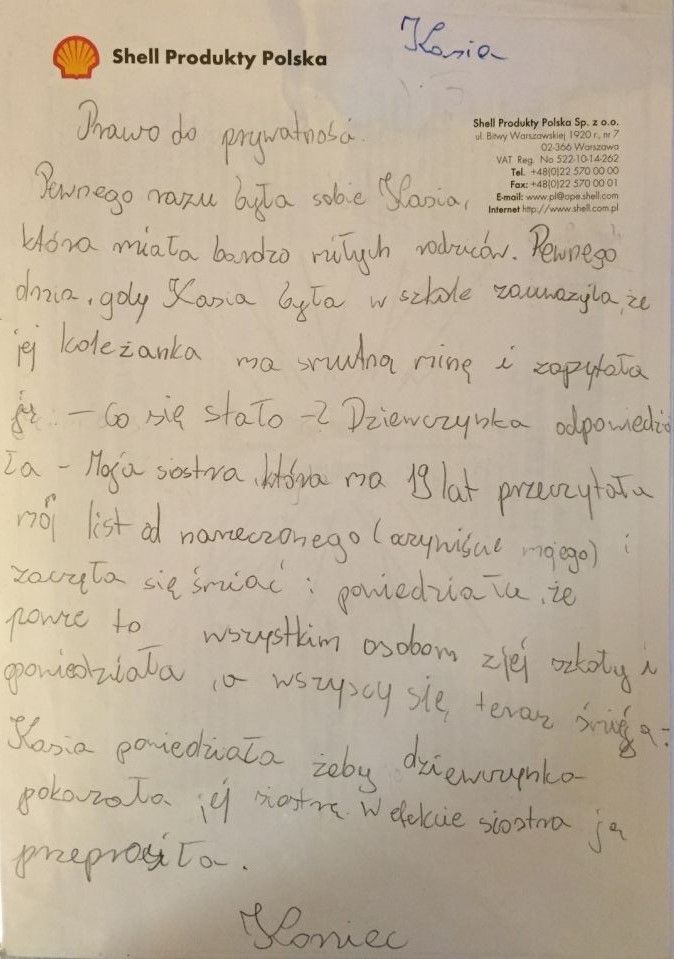 Kasia
Shell Produkty Polska
Prawo do prywatności.
Shell Produkty Polska Sp. z o.o.
ul. Bitwy Warszawskiej 1920 r., nr 7
02-366 Warszawa
VAT Reg. No 522-10-14-262
Tel. +48(0)22 570 00 00
Fax: +48(0)22 570 00 01
E-mail: www.pl@ope.shell.com
Internet http://www.shell.com.pl
Pewnego razu była sobie Kasia,
która miała bardzo miłych rodziców. Pewnego
dnia, gdy Kasia była w szkole zauważyła, że
jej koleżanka ma smutną minę i zapytała
ją. – Co się stało –? Dziewczynka odpowiedzia
ła – Moja siostra, która ma 19 lat przeczytała
mój list od narzeczonego (oczywiście mojego) i
zaczęła się śmiać i powiedziała, że
powie to wszystkim osobom z jej szkoły i
powiedziała, a wszyscy się teraz śmieją.
Kasia powiedziała żeby dziewczynka
pokazała jej siostrę. W efekcie siostra ją
przeprosiła.
Koniec